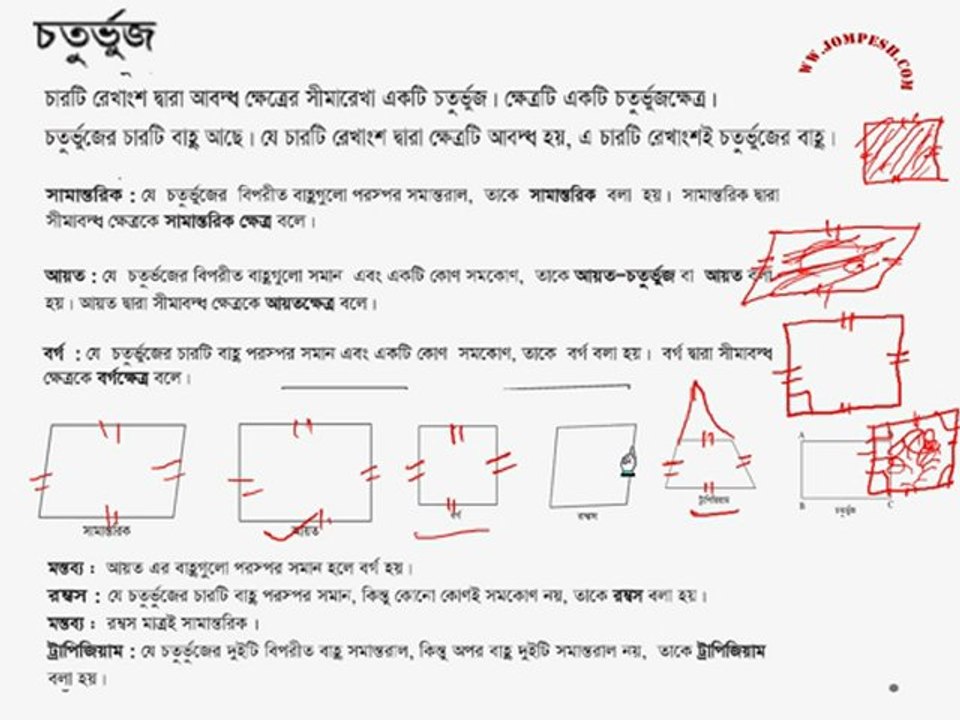 চতুর্ভুজ
WW.JOMPESH.COM
চারটি রেখাংশ দ্বারা আবদ্ধ ক্ষেত্রের সীমারেখা একটি চতুর্ভুজ। ক্ষেত্রটি একটি চতুর্ভুজক্ষেত্র।
চতুর্ভুজের চারটি বাহু আছে। যে চারটি রেখাংশ দ্বারা ক্ষেত্রটি আবদ্ধ হয়, এ চারটি রেখাংশই চতুর্ভুজের বাহু।
সামান্তরিক : যে চতুর্ভুজের বিপরীত বাহুগুলো পরস্পর সমান্তরাল, তাকে সামান্তরিক বলা হয়। সামান্তরিক দ্বারা
সীমাবদ্ধ ক্ষেত্রকে সামান্তরিক ক্ষেত্র বলে।
আয়ত : যে চতুর্ভজের বিপরীত বাহুগুলো সমান এবং একটি কোণ সমকোণ, তাকে আয়ত-চতুর্ভুজ বা আয়ত বলা
হয়। আয়ত দ্বারা সীমাবদ্ধ ক্ষেত্রকে আয়তক্ষেত্র বলে।
বর্গ : যে চতুর্ভুজের চারটি বাহু পরস্পর সমান এবং একটি কোণ সমকোণ, তাকে বর্গ বলা হয়। বর্গ দ্বারা সীমাবদ্ধ
ক্ষেত্রকে বর্গক্ষেত্র বলে।
A
সামান্তরিক আয়ত বর্গ রম্বস ট্রাপিজিয়াম B চতুর্ভুজ C
মন্তব্য : আয়ত এর বাহুগুলো পরস্পর সমান হলে বর্গ হয়।
রম্বস : যে চতুর্ভুজের চারটি বাহু পরস্পর সমান, কিন্তু কোনো কোণই সমকোণ নয়, তাকে রম্বস বলা হয়।
মন্তব্য : রম্বস মাত্রই সামান্তরিক।
ট্রাপিজিয়াম : যে চতুর্ভুজের দুইটি বিপরীত বাহু সমান্তরাল, কিন্তু অপর বাহু দুইটি সমান্তরাল নয়, তাকে ট্রাপিজিয়াম
বলা হয়।